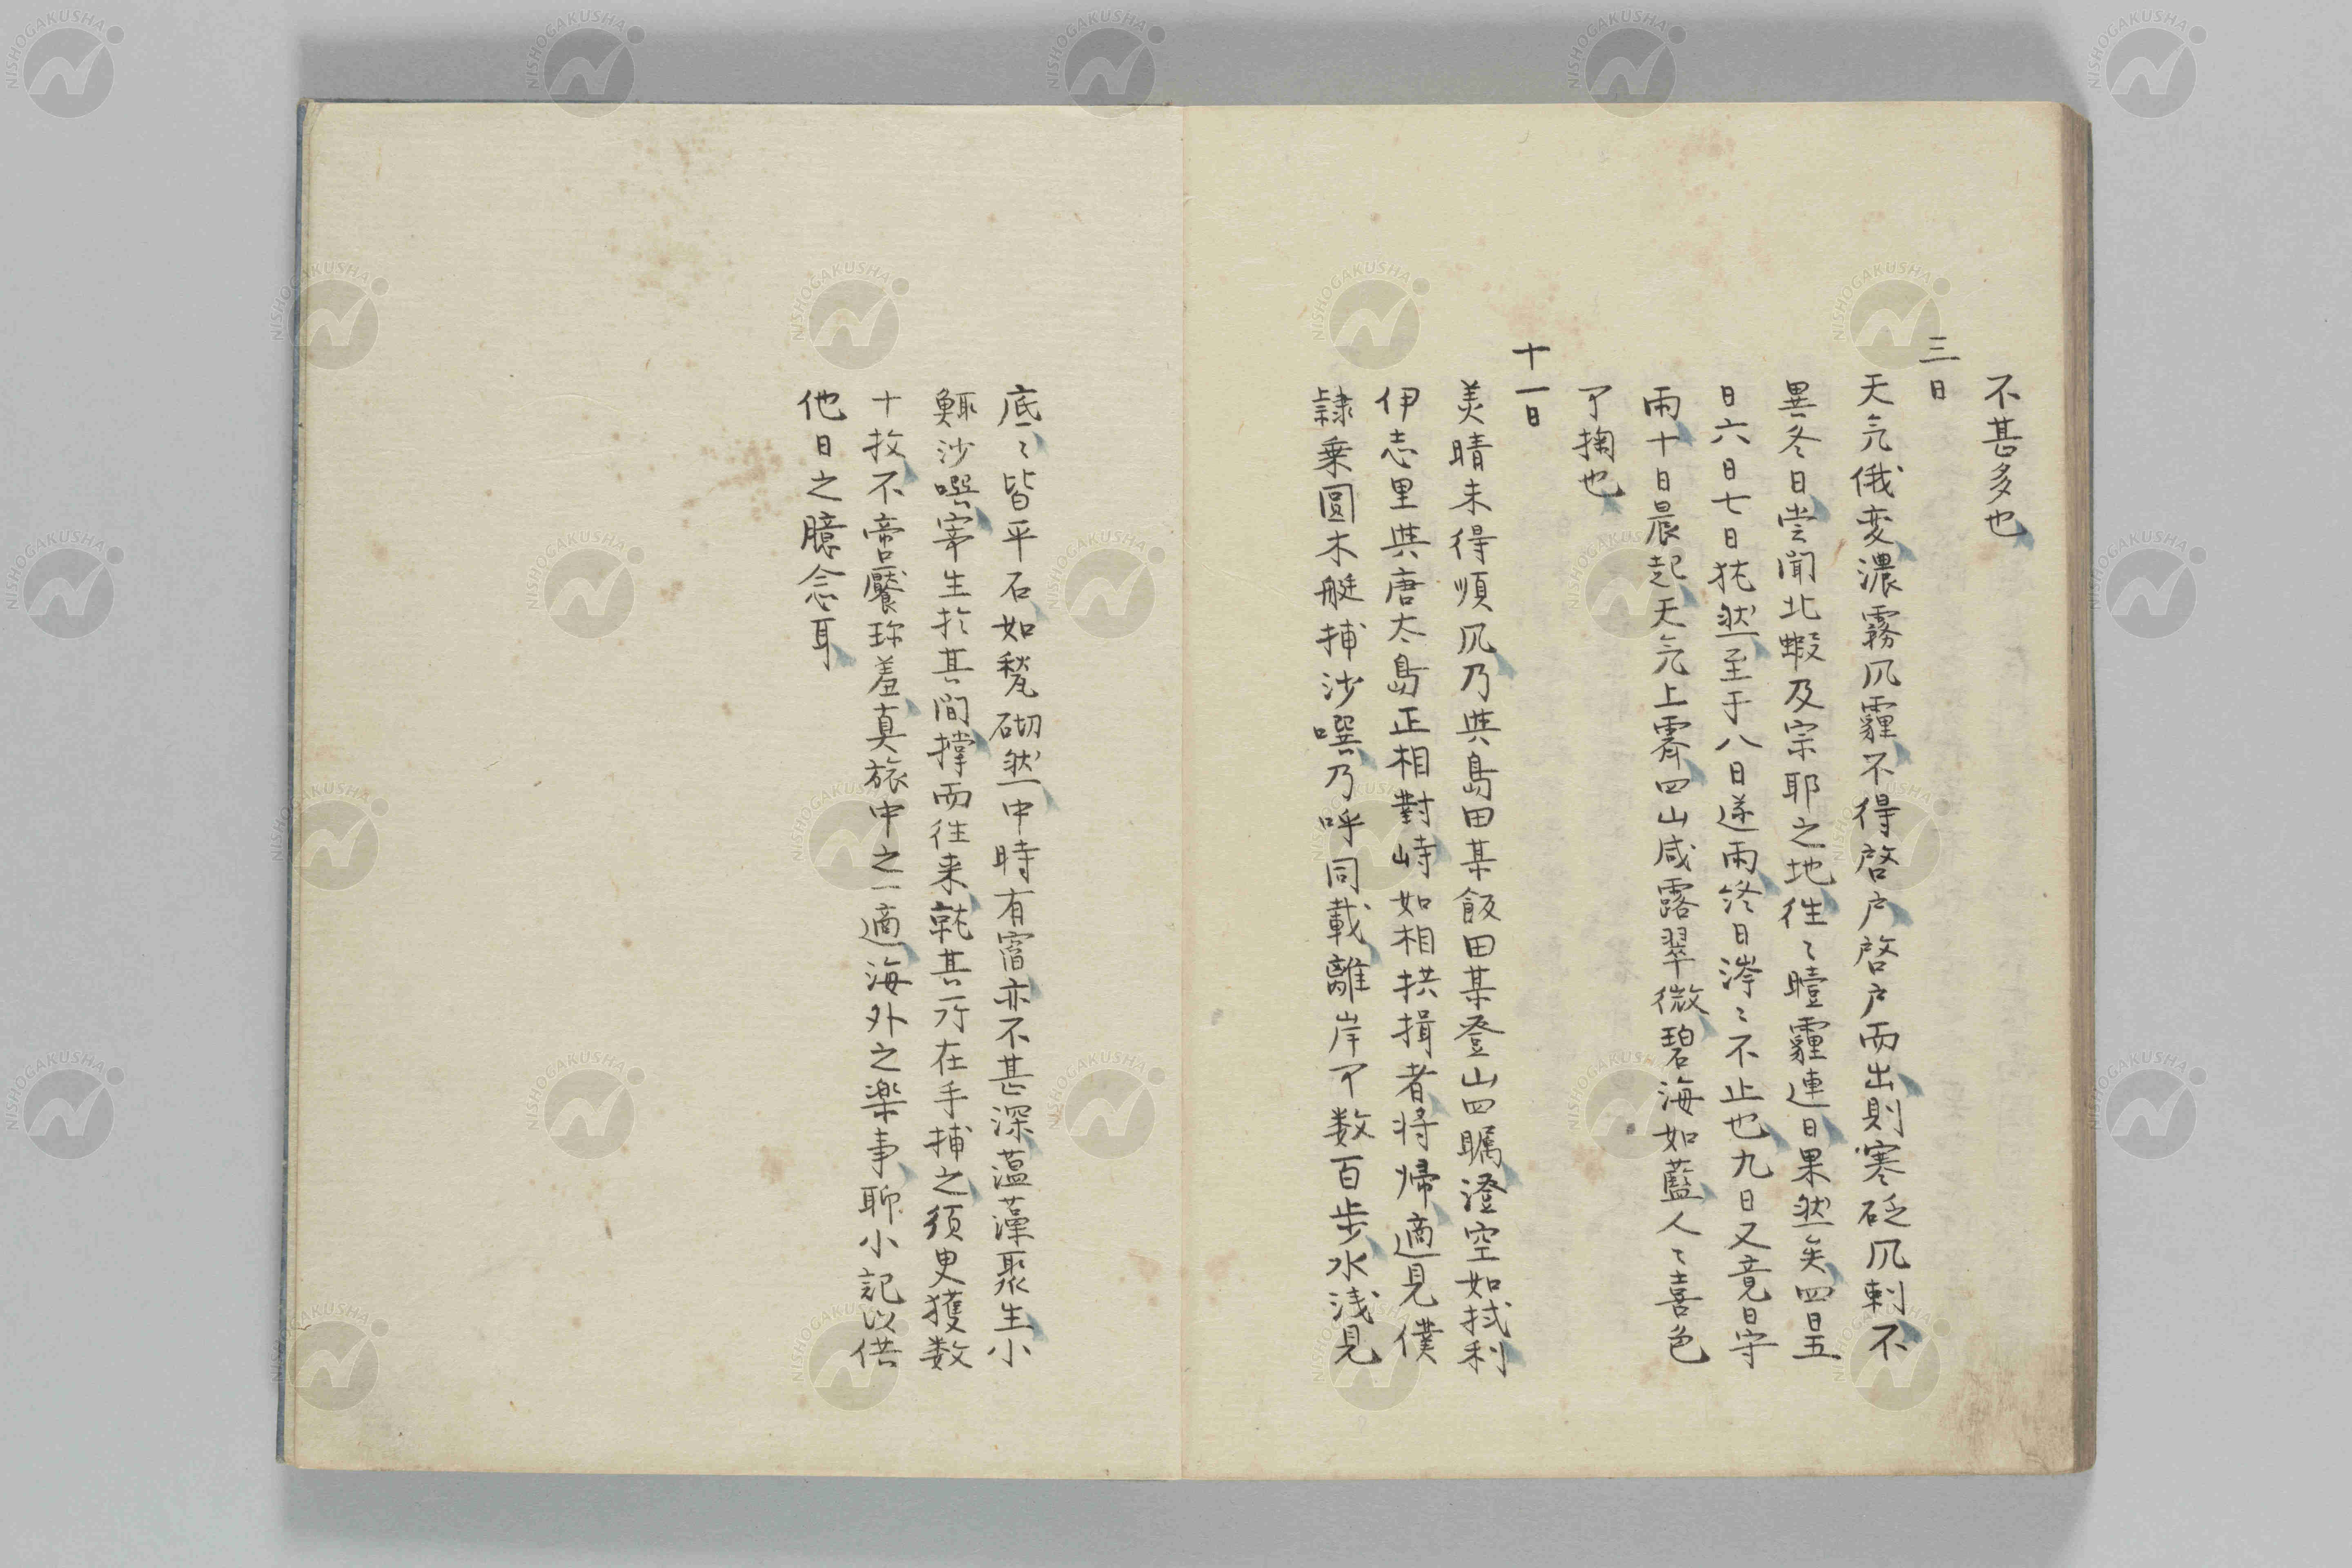 不甚多也
三日
天気俄変濃霧风霾不得啓户啓户而出則寒砭风刺不
異冬日尝聞北蝦及宗耶之地往〻曀霾連日果然矣四日五
日六日七日犹然至于八日遂雨終日涔〻不止也九日又竟日宇
雨十日晨起天気上霽四山咸露翠微碧海如藍人〻喜色
可掬也
十一日
美晴未得順风乃與島田某飯田某登山四瞩澄空如拭利
伊志里與唐太島正相對峙如相拱揖者将帰適見僕
隷乗圓木艇捕沙噀乃呼同載離岸可数百歩水浅見
底〻皆平石如甃砌然中時有窞亦不甚深薀藻聚生小
鯫沙噀宰生於其間撑而往来就其所在手捕之須臾獲数
十枚不啻饜珎羞真旅中之一適海外之楽事聊小記以供
他日之臆念耳